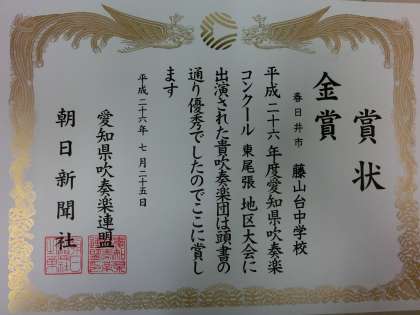 賞状
金賞
春日井市 藤山台中学校
平成二十六年度愛知県吹奏楽
コンクール 東尾張 地区大会に
出演された貴吹奏楽団は頭書の
通り優秀でしたのでここに賞し
ます
平成二十六年 七月二十五日
愛知県吹奏楽連盟
朝日新聞社